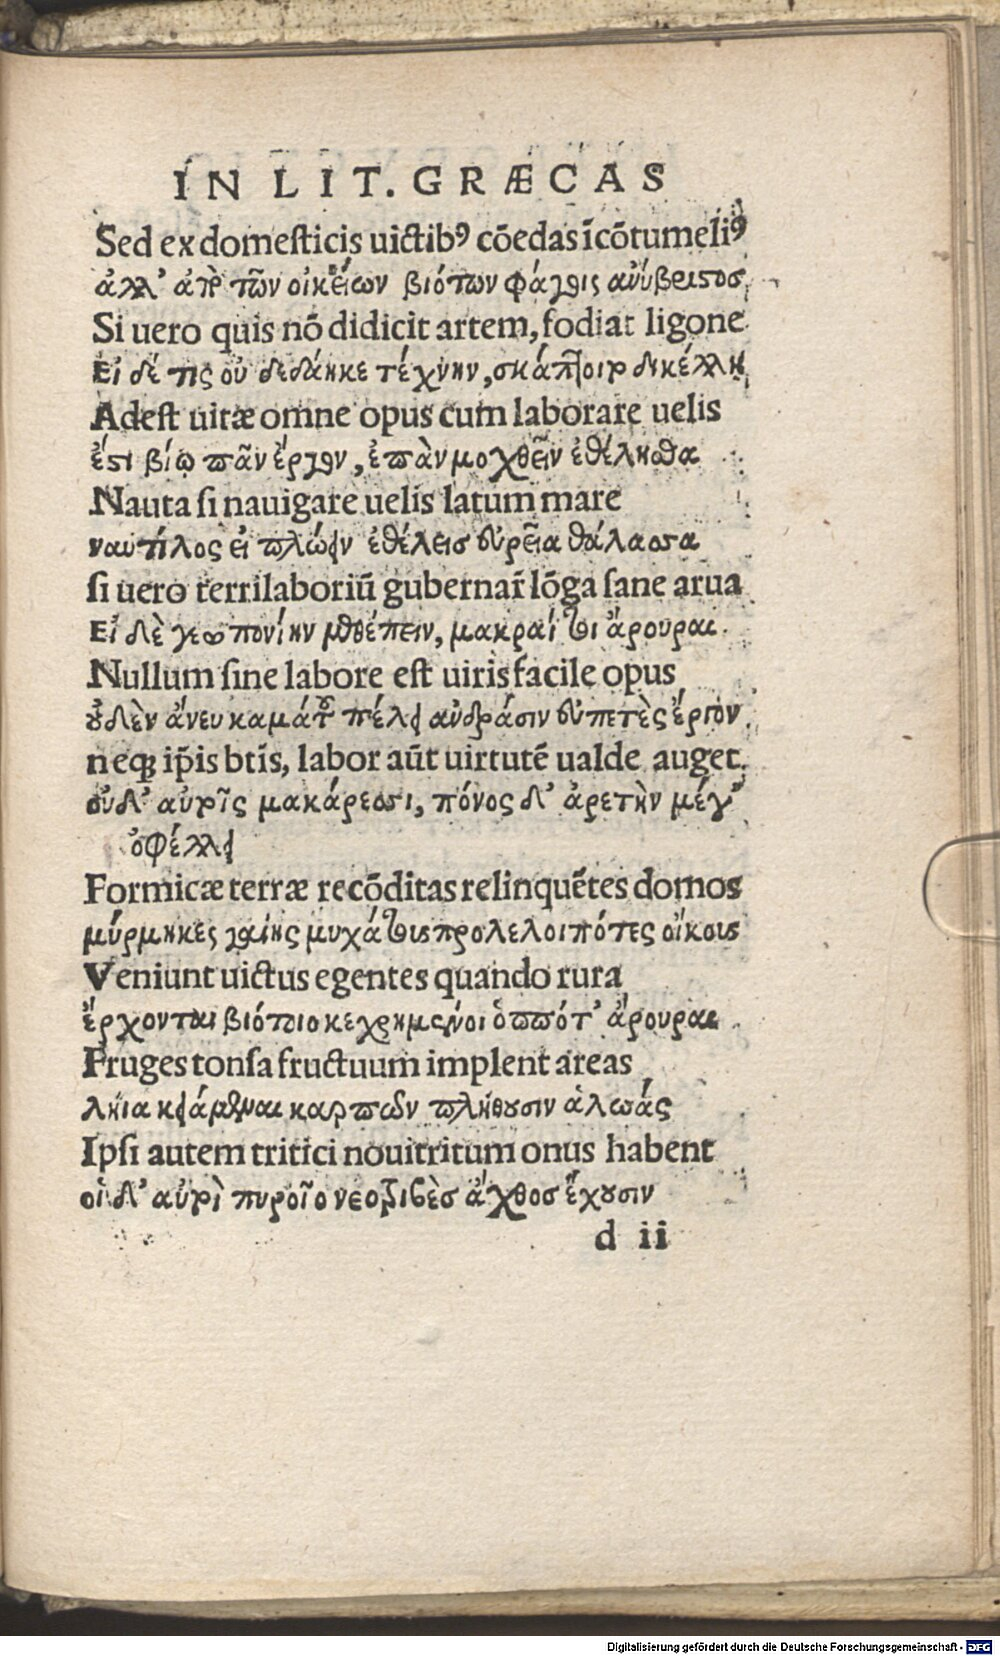 IN LIT. GRÆCAS
Sed ex domesticis uictibꝰ cōedas īcōtumeliꝰ
ἀλλ' ἀπὸ τῶν οἰκείων βιότων φάγοις ἀνύβριστος
Si uero quis nō didicit artem, fodiat ligone
Εἰ δέ τις οὐ δεδάηκε τέχνην, σκάπτοιτο δικέλλῃ
Adest uitæ omne opus cum laborare uelis
ἔστι βίῳ πᾶν ἔργον, ἐπὰν μοχθεῖν ἐθέλησθα
Nauta si nauigare uelis latum mare
ναυτίλος εἰ πλώειν ἐθέλεις εὐρεῖα θάλασσα
si uero terrilaboriū gubernar̄ lōga sane arua
Εἰ δὲ γεωπονίην μεθέπειν, μακραί τοι ἄρουραι.
Nullum sine labore est uiris facile opus
οὐδὲν ἄνευ καμάτου πέλει ἀνδράσιν εὐπετὲς ἔργον
neqꝫ ip̄is bt̄is, labor aūt uirtutē ualde auget.
οὐδ' αὐτοῖς μακάρεσσι, πόνος δ' ἀρετὴν μέγ'
ὀφέλλει
Formicæ terræ recōditas relinquētes domos
μύρμηκες γαίης μυχάτους προλελοιπότες οἴκους
Veniunt uictus egentes quando rura
ἔρχονται βιότοιο κεχρημένοι ὁππότ' ἄρουραι
Fruges tonsa fructuum implent areas
λήια κειράμεναι καρπῶν πλήθουσιν ἀλωάς
Ipsi autem tritici nouitritum onus habent
οἱ δ' αὐτοὶ πυροῖο νεοτριβὲς ἄχθος ἔχουσιν
d ii
Digitalisierung gefördert durch die Deutsche Forschungsgemeinschaft - DFG